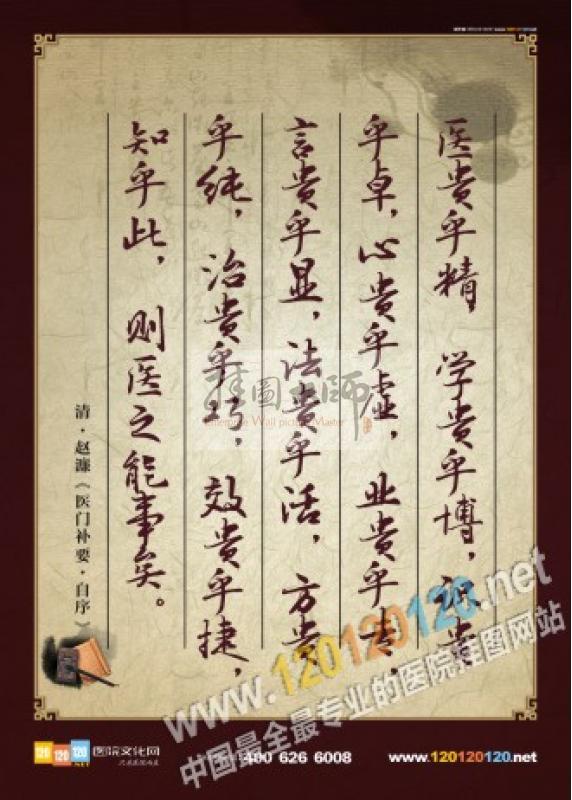 医贵乎精，学贵乎博，识贵
乎卓，心贵乎虚，业贵乎专，
言贵乎显，法贵乎活，方贵
乎纯，治贵乎巧，效贵乎捷，
知乎此，则医之能事矣。
清·赵濂《医门补要·自序》
挂图大师
Wall picture Master
www.120120120.net
中国最全最专业的医院挂图网站
120 120 120 .NET 医院文化网
400 626 6008
www.120120120.net